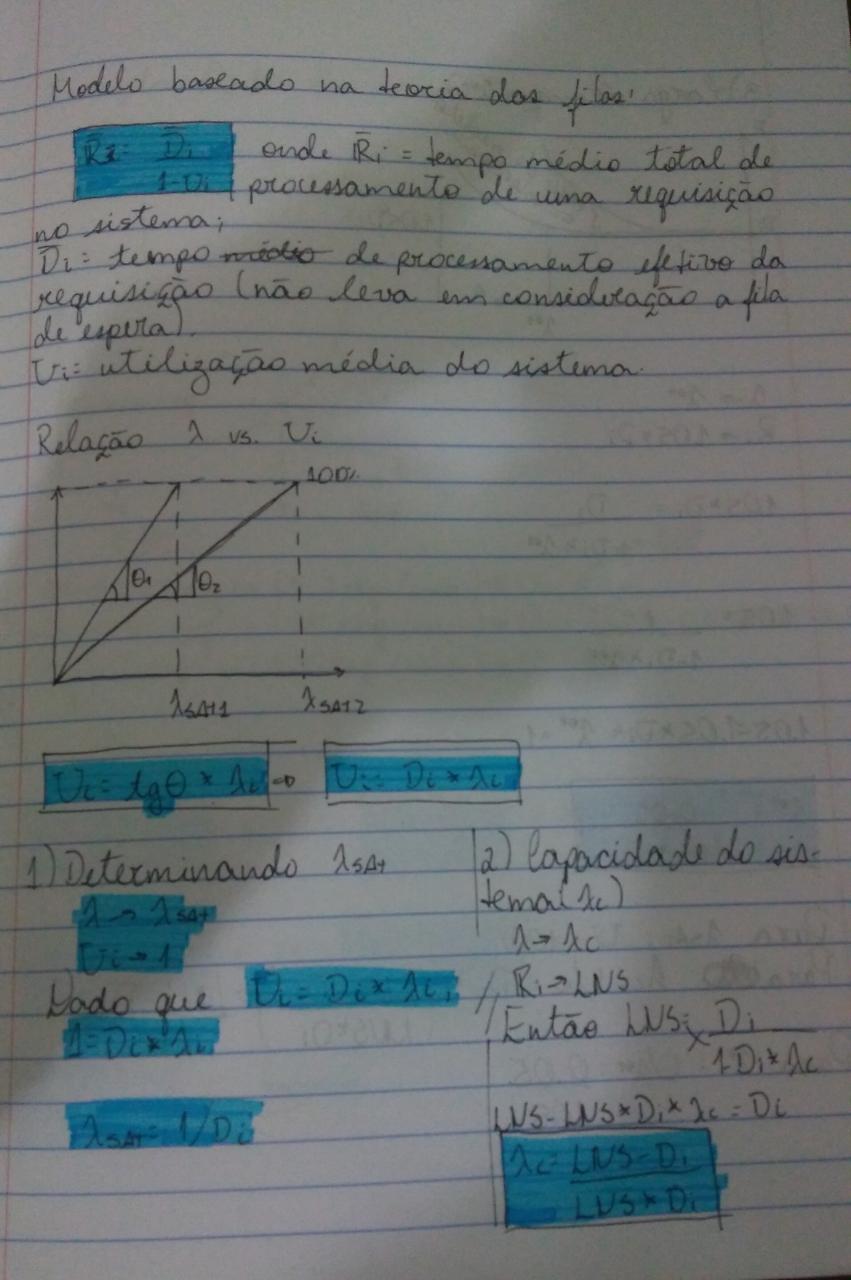 Modelo baseado na teoria das filas:
R̄i = D̄i / 1-Ui onde R̄i = tempo médio total de
processamento de uma requisição
no sistema;
D̄i = tempo médio de processamento efetivo da
requisição (não leva em consideração a fila
de espera).
Ui = utilização média do sistema.
Relação λ vs. Ui
100%
θ1 θ2
λSAT1 λSAT2
Ui = tgθ * λi ⇒ Ui = Di * λi
1) Determinando λSAT
λ → λSAT
Ui → 1
Dado que Ui = Di * λi,
1 = Di * λi
λSAT = 1/Di
2) Capacidade do sis-
tema (λc)
λ → λc
Ri → LNS
Então LNS = Di / 1-Di * λc
LNS - LNS * Di * λc = Di
λc = LNS - Di
LNS * Di